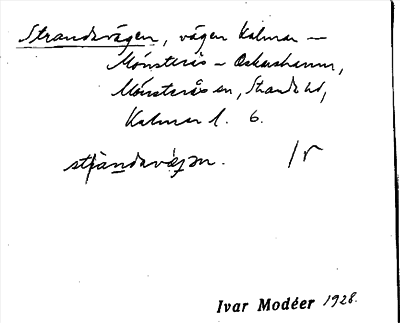 Strandvägen, vägen Kalmar –
Mönsterås – Oskarshamn,
Mönsterås sn, Stranda hd,
Kalmar l. 6.
Ivar Modéer 1928.